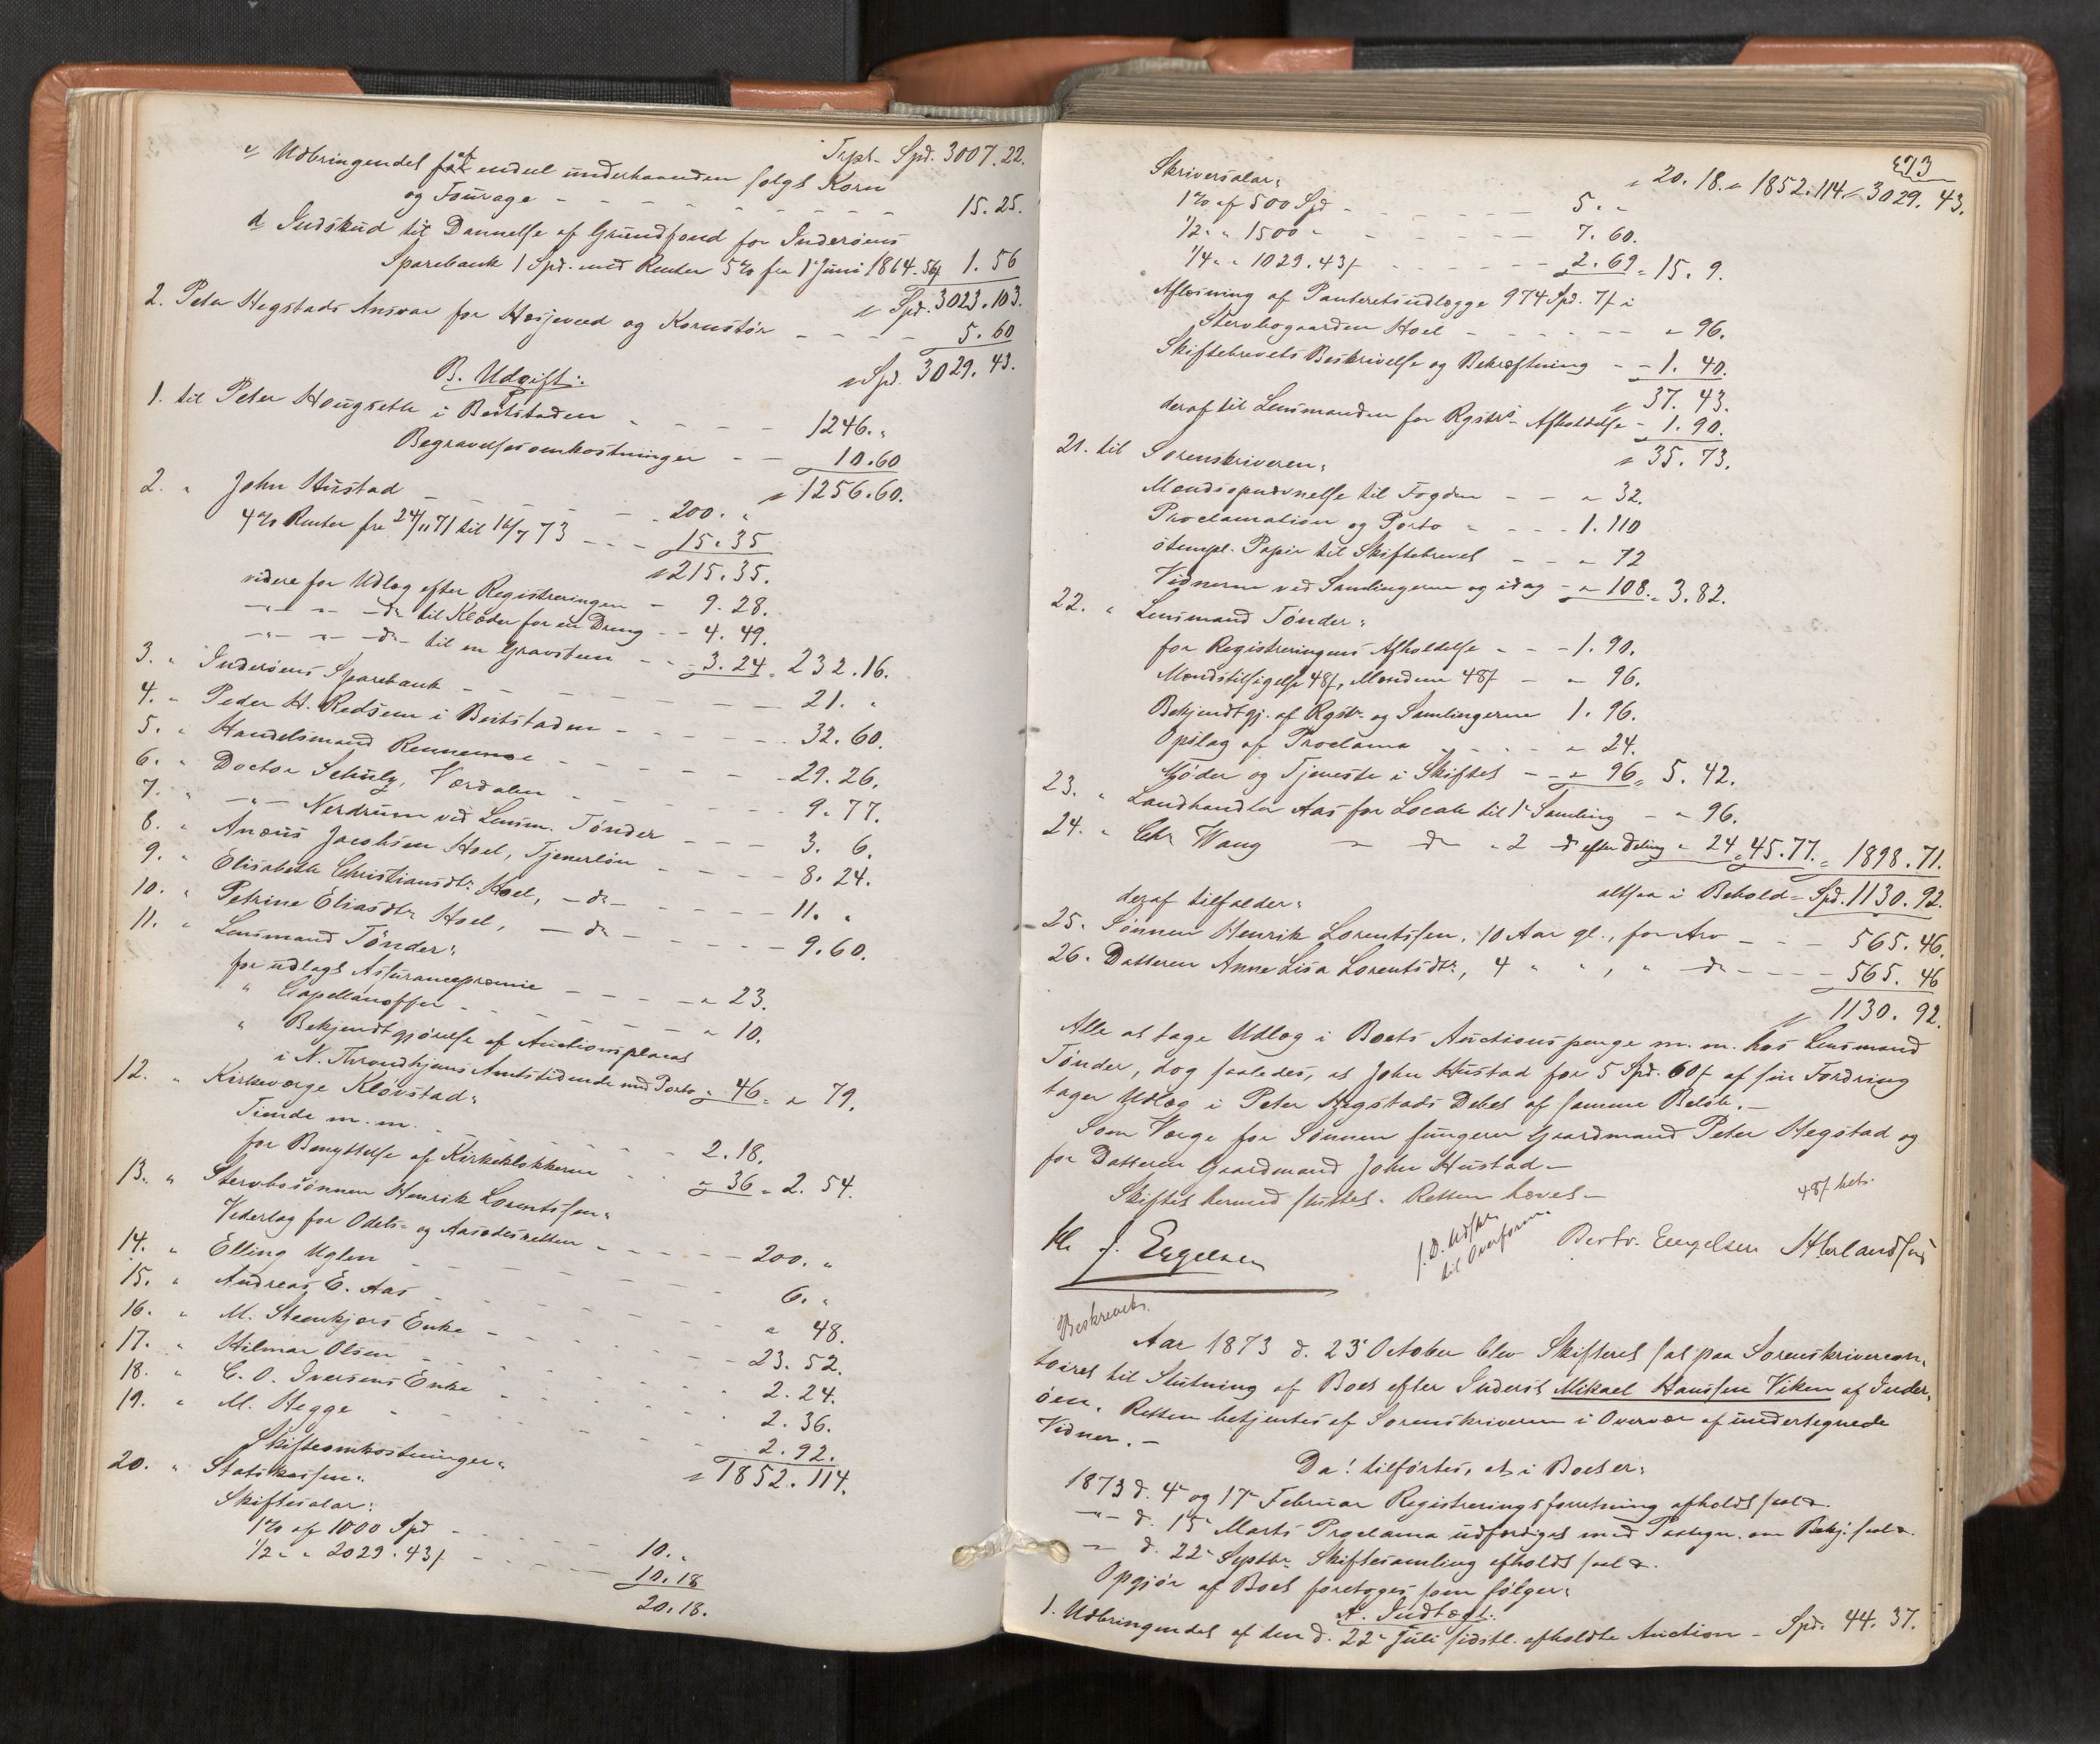 Trpt. Spd. 3007. 22.
c, Udbringendet af endeel underhaanden solgt Korn
og Fourage - - - - - - - - 15. 25.
d, Indskud til Dannelse af Grundfond for Inderøens
Sparebank 1 Spd. med Renter 5% fra 1 Juni 1864. 56β 1. 56
" Spd. 3023. 103.
2. Peter Hegstads Ansvar for Hesjeveed og Kornstør - - - - 5. 60
" Spd. 3029. 43.
B. Udgift:
1. til Peter Hougseth i Beitstaden - - - - 1246. "
Begravelsesomkostninger - - 10. 60
" 1256. 60.
2. " John Hustad - - - - - 200. "
4% Renter fra 24/11 71 til 16/7 73 - - - 15. 35
" 215. 35.
videre for Udlæg efter Registreringen - 9. 28.
-"- -"- -do- til Klæder for en Dreng - - 4. 49.
-"- -"- -do- til en Gravsteen - - - 3. 24 " 232. 16.
3. " Inderøens Sparebank - - - - - - 21. "
4. " Peder H. Redsem i Beitstaden - - - - - 32. 60.
5. " Handelsmand Rennemoe - - - - - 29. 26.
6. " Doctor Schulz, Værdalen - - - - - 9. 77.
7. " -"- Nerdrum ved Lensm. Tønder - - - - 3. 6.
8. " Anæus Jacobsen Hoel, Tjenerløn - - - - 8. 24.
9. " Elisabeth Christiansdtr. Hoel, -do- - - - - 11. "
10. " Petrine Eliasdtr. Hoel, -do- - - - - - 9. 60.
11. " Lensmand Tønder:
for udlagt Assurancepræmie - - - - " 23.
" Capellanoffer - - - - - - " 10.
" Bekjendtgjørelse af Auctionsplacat
i N. Throndhjems Amtstidende med Porto " 46 = " 79.
12. " Kirkeværge Kløvstad:
Tiende m. m. - - - - - 2. 18.
for Benyttelse af Kirkeklokkerne - - " 36 = 2. 54.
13. " Stervbosønnen Henrik Lorentssen:
Vederlag for Odels- og Aasædesretten - - - - - 200. "
14. " Elling Uglen - - - - - - 6. "
15. " Andreas E. Aas - - - - - - " 48.
16. " M. Steenkjærs Enke - - - - - - 23. 52.
17. " Hilmar Olsen - - - - - - 2. 24.
18. " C. O. Iversens Enke - - - - - - 2. 36.
19. " M. Hegge - - - - - - 2. 92.
" 1852. 114.
Skifteomkostninger:
20. " Statskassen:
Skiftesalar:
1% af 1000 Spd - - - - - 10. "
1/2 " " 2029. 43β - - - - 10. 18
20. 18.
" 20. 18. " 1852. 114. " 3029. 43.
Skriversalar:
1% af 500 Spd - - - - - 5. "
1/2 " " 1500 " - - - - - 7. 60.
1/4 " " 1029. 43β - - - - - 2. 69 = 15. 9.
Aflæsning af Panteretsudlægge 974 Spd. 7β i
Stervbogaarden Hoel - - - - - - " 96.
Skiftebrevets Beskrivelse og Bekræftning - - 1. 40.
" 37. 43.
deraf til Lensmanden for Rgstrs Afholdelse - 1. 90.
" 35. 73.
21. til Sorenskriveren:
Mændsopnævnelse til Fogden - - " 32.
Proclamation og Porto - - - - 1. 110
stempl. Papir til Skiftebrevet - - " 72
Vidnerne ved Samlingerne og idag - " 108. = 3. 82.
22. " Lensmand Tønder:
for Registreringens Afholdelse - - - 1. 90.
Mændstilsigelse 48β, Mændene 48β - " 96.
Bekjendtgj. af Rgstr. og Samlingerne 1. 96.
Opslag af Proclama - - - - " 24.
Møder og Tjeneste i Skiftet - - " 96 = 5. 42.
23. " Landhandler Aas for Locale til 1ste Samling - " 96.
24. " Chr Wang " do " 2 do efter Deling " 24 = 45. 77. = 1898. 71.
altsaa i Behold = Spd. 1130. 92.
deraf tilfalder:
25. Sønnen Henrik Lorentssen, 10 Aar gl., for Arv - - - 565. 46.
26. Datteren Anne Lisa Lorentsdtr., 4 " " , " do - - - - 565. 46
" 1130. 92.
Alle at tage Udlæg i Boets Auctionspenge m. m. hos Lensmand
Tønder, dog saaledes, at John Hustad for 5 Spd. 60β af sin Fordring
tager Udlæg i Peter Hegstads Debet af samme Beløb. -
Som Værge for Sønnen fungerer Gaardmand Peter Hegstad og
for Datteren Gaardmand John Hustad -
Skiftet hermed sluttet. Retten hævet -
48β bet.
J. Engelsen
til Overform.
Bertr. Engelsen
Beskrevet.
Aar 1873 d. 23 October blev Skifteret sat paa Sorenskrivercon-
toiret til Slutning af Boet efter Inderst Mikael Hanssen Viken af Inder-
øen. Retten betjentes af Sorenskriveren i Overvær af undertegnede
Vidner. -
Da! tilførtes, at i Boet er:
1873 d. 4 og 17 Februar Registreringsforretning afholdt
-"- d. 15 Marts Proclama udfærdiget med Paategn. om Bekj.
-"- d. 22 Septbr Skiftesamling afholdt
Opgjør af Boet foretoges som følger:
A. Indtægt:
1. Udbringendet af den d. 22 Juli sidstl. afholdte Auction - Spd. 44. 37.